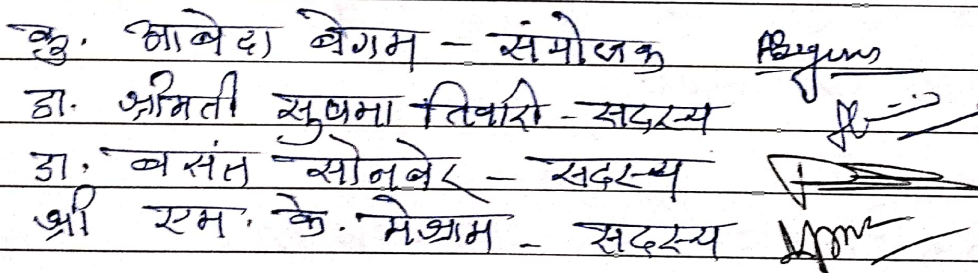 कु. आबेदा बेगम - संयोजक ABegum
डा. श्रीमती सुषमा तिवारी - सदस्य
डा. बसंत सोनबेर - सदस्य
श्री एम. के. मेश्राम - सदस्य